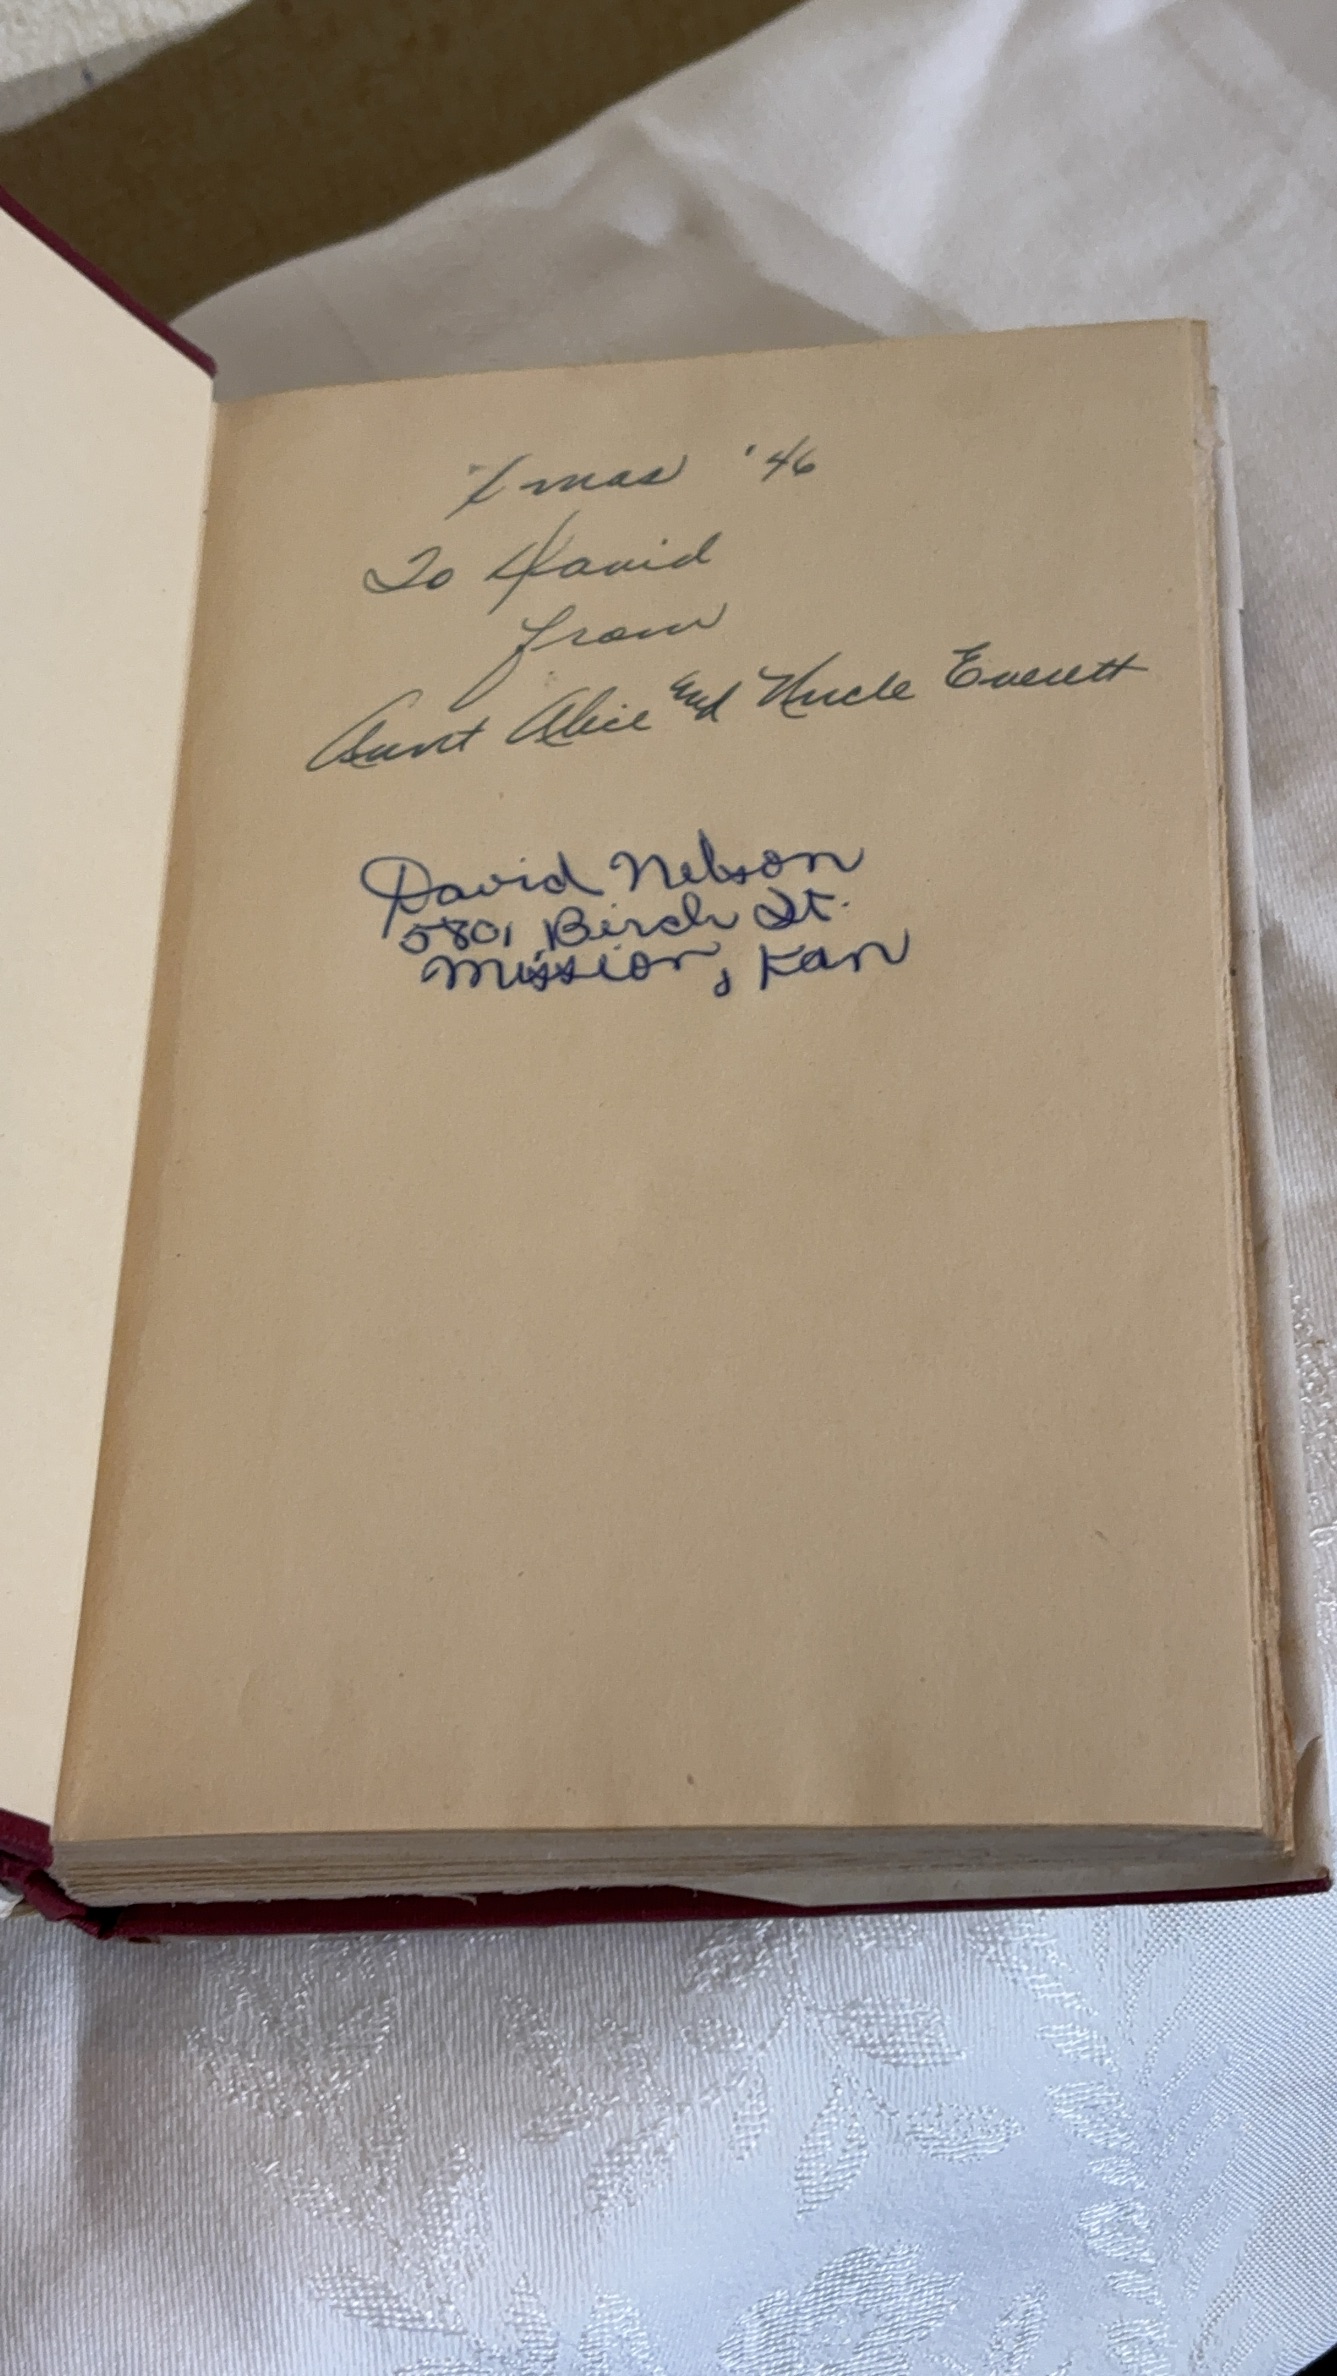 Xmas '46
To David
from
Aunt Alice and Uncle Everett
David Nelson
5801 Birch St.
Mission, Kan